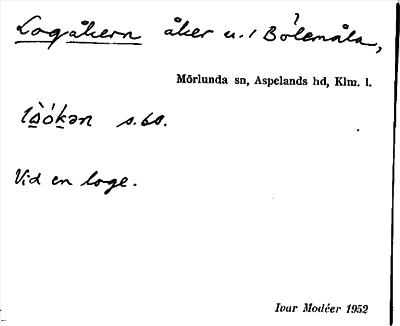 Logåkern åker u. 1 Bölemåla,
Mörlunda sn, Aspelands hd, Klm. l.
s. bo.
Vid en loge.
Ivar Modéer 1952